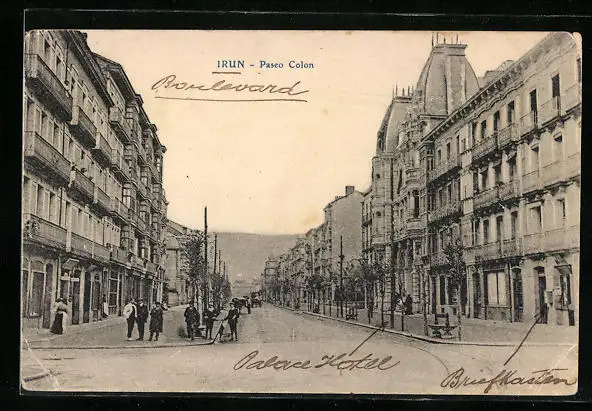 IRUN - Paseo Colon
Boulevard
Palace Hotel
Briefkasten